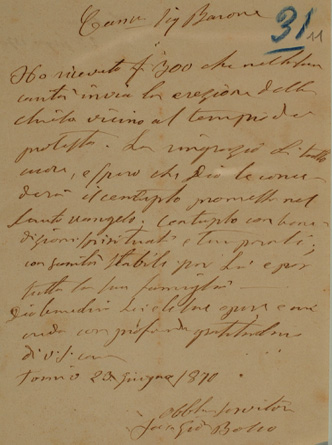 Carmo Sig Barone
31
11
Ho ricevuto f 300 che nella sua
carità invia la erezione della
chiesa vicino al tempio de
protesta. La ringrazio di tutto
cuore, e spero che Dio le conce
derà il centuplo promesso nel
santo vangelo; centuplo con bene
dizioni spirituali e temporali,
con sanità stabile per Lei e per
tutta la sua famiglia
Dio benedica Lei e le sue opere e mi
creda con profonda gratitudine
di V. S. car
Torino 23 giugno 1870
Obblmo servitore
Sac. Gio Bosco